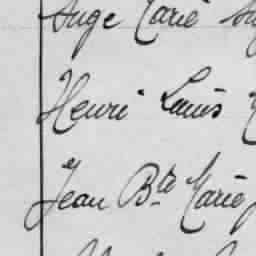 Ange Marie
Henri Louis
Jean Bte Marie